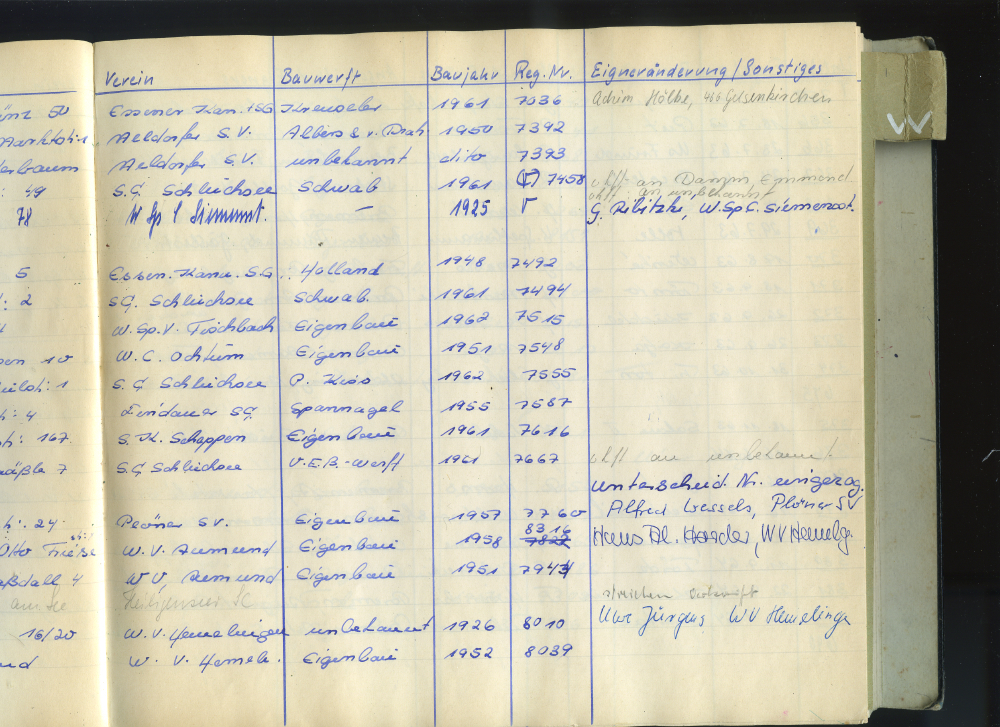 Verein Bauwerft Baujahr Reg.Nr. Eigneränderung/Sonstiges
50 Essener Kan. + SG 1961 7036 Achim Hölbe, 466 Gelsenkirchen
S.V. Albers & v. 1950 7392
erbaum S.V. unbekannt dito 7393
49 S.C Schluchsee Schwab 1961 7458 vkft an Damm Emmend
vkft an unbekannt
78 W Sp C Siemenst. — 1925 G. Ribitzki, W.Sp.C. Siemensst.
5 Essen. Kanu. S.G. Holland 1948 7492
: 2 SC. Schluchsee Schwab. 1961 7494
W.Sp.V. Fischbach Eigenbau 1962 7515
10 W.C. Ochtum Eigenbau 1951 7548
: 1 S.C Schluchsee P. Kiss 1962 7555
: 4 Lindauer SC Spannagel 1955 7587
: 167 S.K. Schappen Eigenbau 1961 7616
7 S.C Schluchsee V.E.B.-Werft 1961 7667 vkft an unbekannt
Unterscheid. Nr. eingezog.
: 24 S.V. Eigenbau 1957 7760 Alfred Wessels, Plöner SV
8316
Otto W.V. Aumund Eigenbau 1958 7822 Hans Harder, WV Hemelg.
4 W.V. Aumund Eigenbau 1951 7944
am See SC streichen
16/20 W.V. Hemelingen unbekannt 1926 8010 Uwe Jürgens WV Hemelinge
W. V. Hemel. Eigenbau 1952 8039